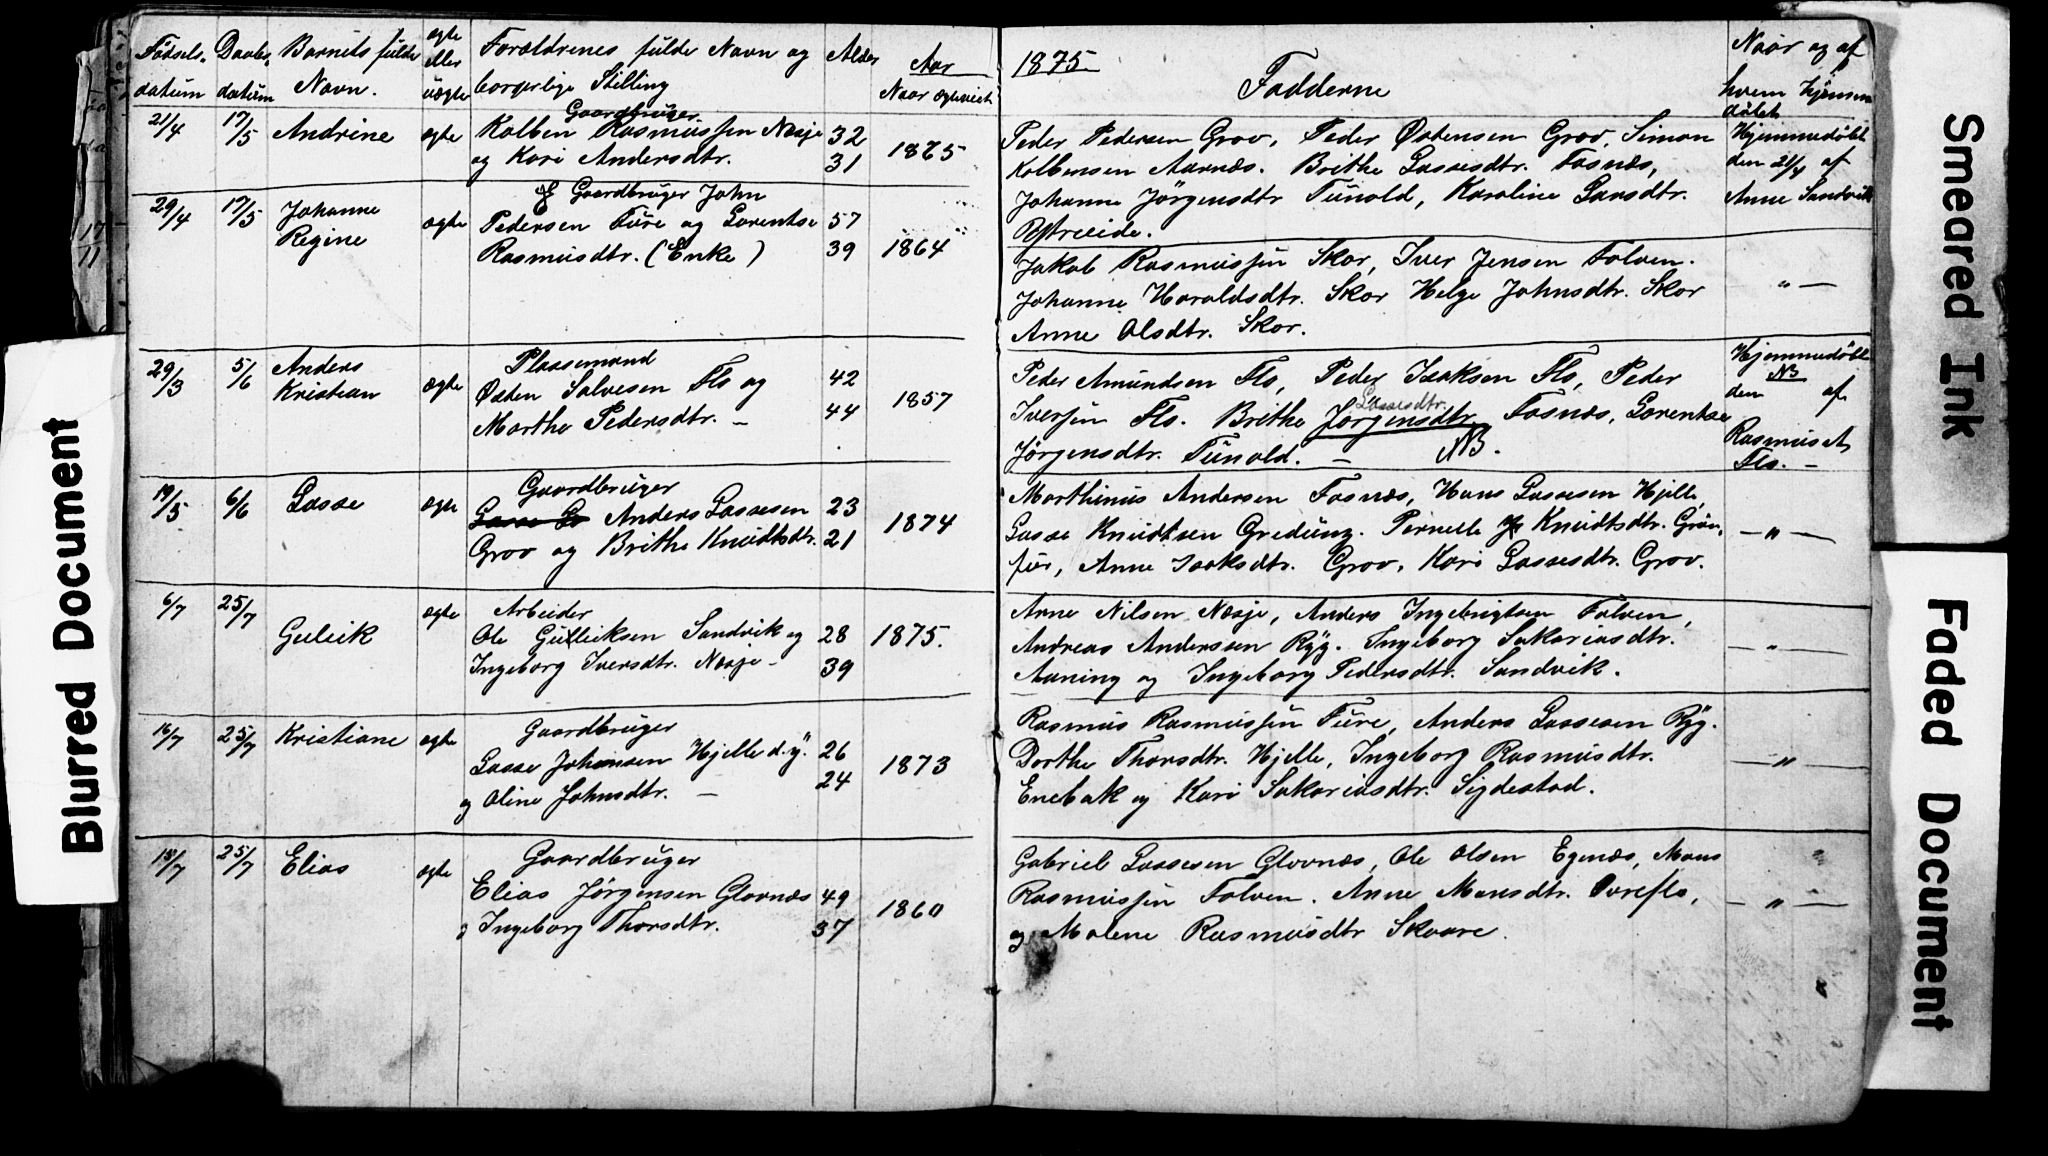 Fødsels-
datum
Daabs-
datum
Barnets fulde
Navn.
ægte
eller
uægte
Forældrenes fulde Navn og
borgerlige Stilling
Alder
Aar
Naar ægteviet
21/4
17/5
Andrine
ægte
Gaardbruger
Kolben Rasmussen Næsje
og Kari Andersdtr.
32
31
1865
29/4
17/5
Johanne
Regine
ægte
Gaardbruger John
Pedersen Fure og Lorentse
Rasmusdtr. (Enke)
57
39
1864
29/3
5/6
Anders
Kristian
ægte
Pladsemand
Østen Salvesen Flo og
Marthe Pedersdtr. -
42
44
1857
19/5
6/6
Lasse
ægte
Gaardbruger
Anders Lassesen
Grov og Brithe Knudtsdtr.
23
21
1874
6/7
25/7
Guleik
ægte
Arbeider
Ole Gulleiksen Sandvik og
Ingeborg Iversdtr. Næsje -
28
39
1875.
16/7
25/7
Kristiane
ægte
Gaardbruger
Lasse Johansen Hjelle d.y.
og Oline Johnsdtr. -
26
24
1873
15/7
25/7
Elias
ægte
Gaardbruger
Elias Jørgensen Glovnæs
og Ingeborg Thorsdtr.
49
37
1860
1875
Fadderne
Naar og af
hvem hjemme
døbt
Peder Pedersen Grov, Peder Østensen Grov, Simon
Kolbensen Aarnæs. Brithe Lassesdtr. Fosnæs,
Johanne Jörgensdtr Tunold, Karoline Larsdtr.
Ystreeide.
Hjemmedøbt
den 21/4 af
Anne Sandvik
Jakob Rasmussen Skor, Iver Jensen Folven.
Johanne Haraldsdtr. Skor Helge Johnsdtr. Skor
Anne Olsdtr. Skor.
" —
Peder Amundsen Flo, Peder Isaksen Flo, Peder
Lassesdtr.
Iversen Flo. Brithe Jørgensdtr Fosnæs, Lorentse
Jørgensdtr. Tunold. — NB.
Hjemmedøbt
NB
den af
Rasmus A
Flo. -
Marthinus Andersen Fosnæs, Hans Lassesen Hjelle,
Lasse Knudtsen Gredung. Pernelle Knudtsdtr. Grön-
für, Anne Isaksdtr. Grov, Kari Lassesdtr. Grov.
— " —
Arne Nilsen Næsje, Anders Ingebrigtsen Folven,
Andreas Anderssen Ryg. Ingeborg Sakariasdtr.
Aaning og Ingeborg Pedersdtr. Sandvik.
— " —
Rasmus Rasmussen Fure, Anders Lassesen Ryg.
Dorthe Thorsdtr. Hjelle, Ingeborg Rasmusdtr.
Enebak og Kari Sakariasdtr. Sigdestad.
— " —
Gabriel Lassesen Glovnæs, Ole Olsen Egenæs, Mons
Rasmussen Folven. Anne Monsdtr. Øvreflo,
og Malene Rasmusdtr Skaare.
— " —
17
11
Blurred Document
Smeared Ink
Faded Document